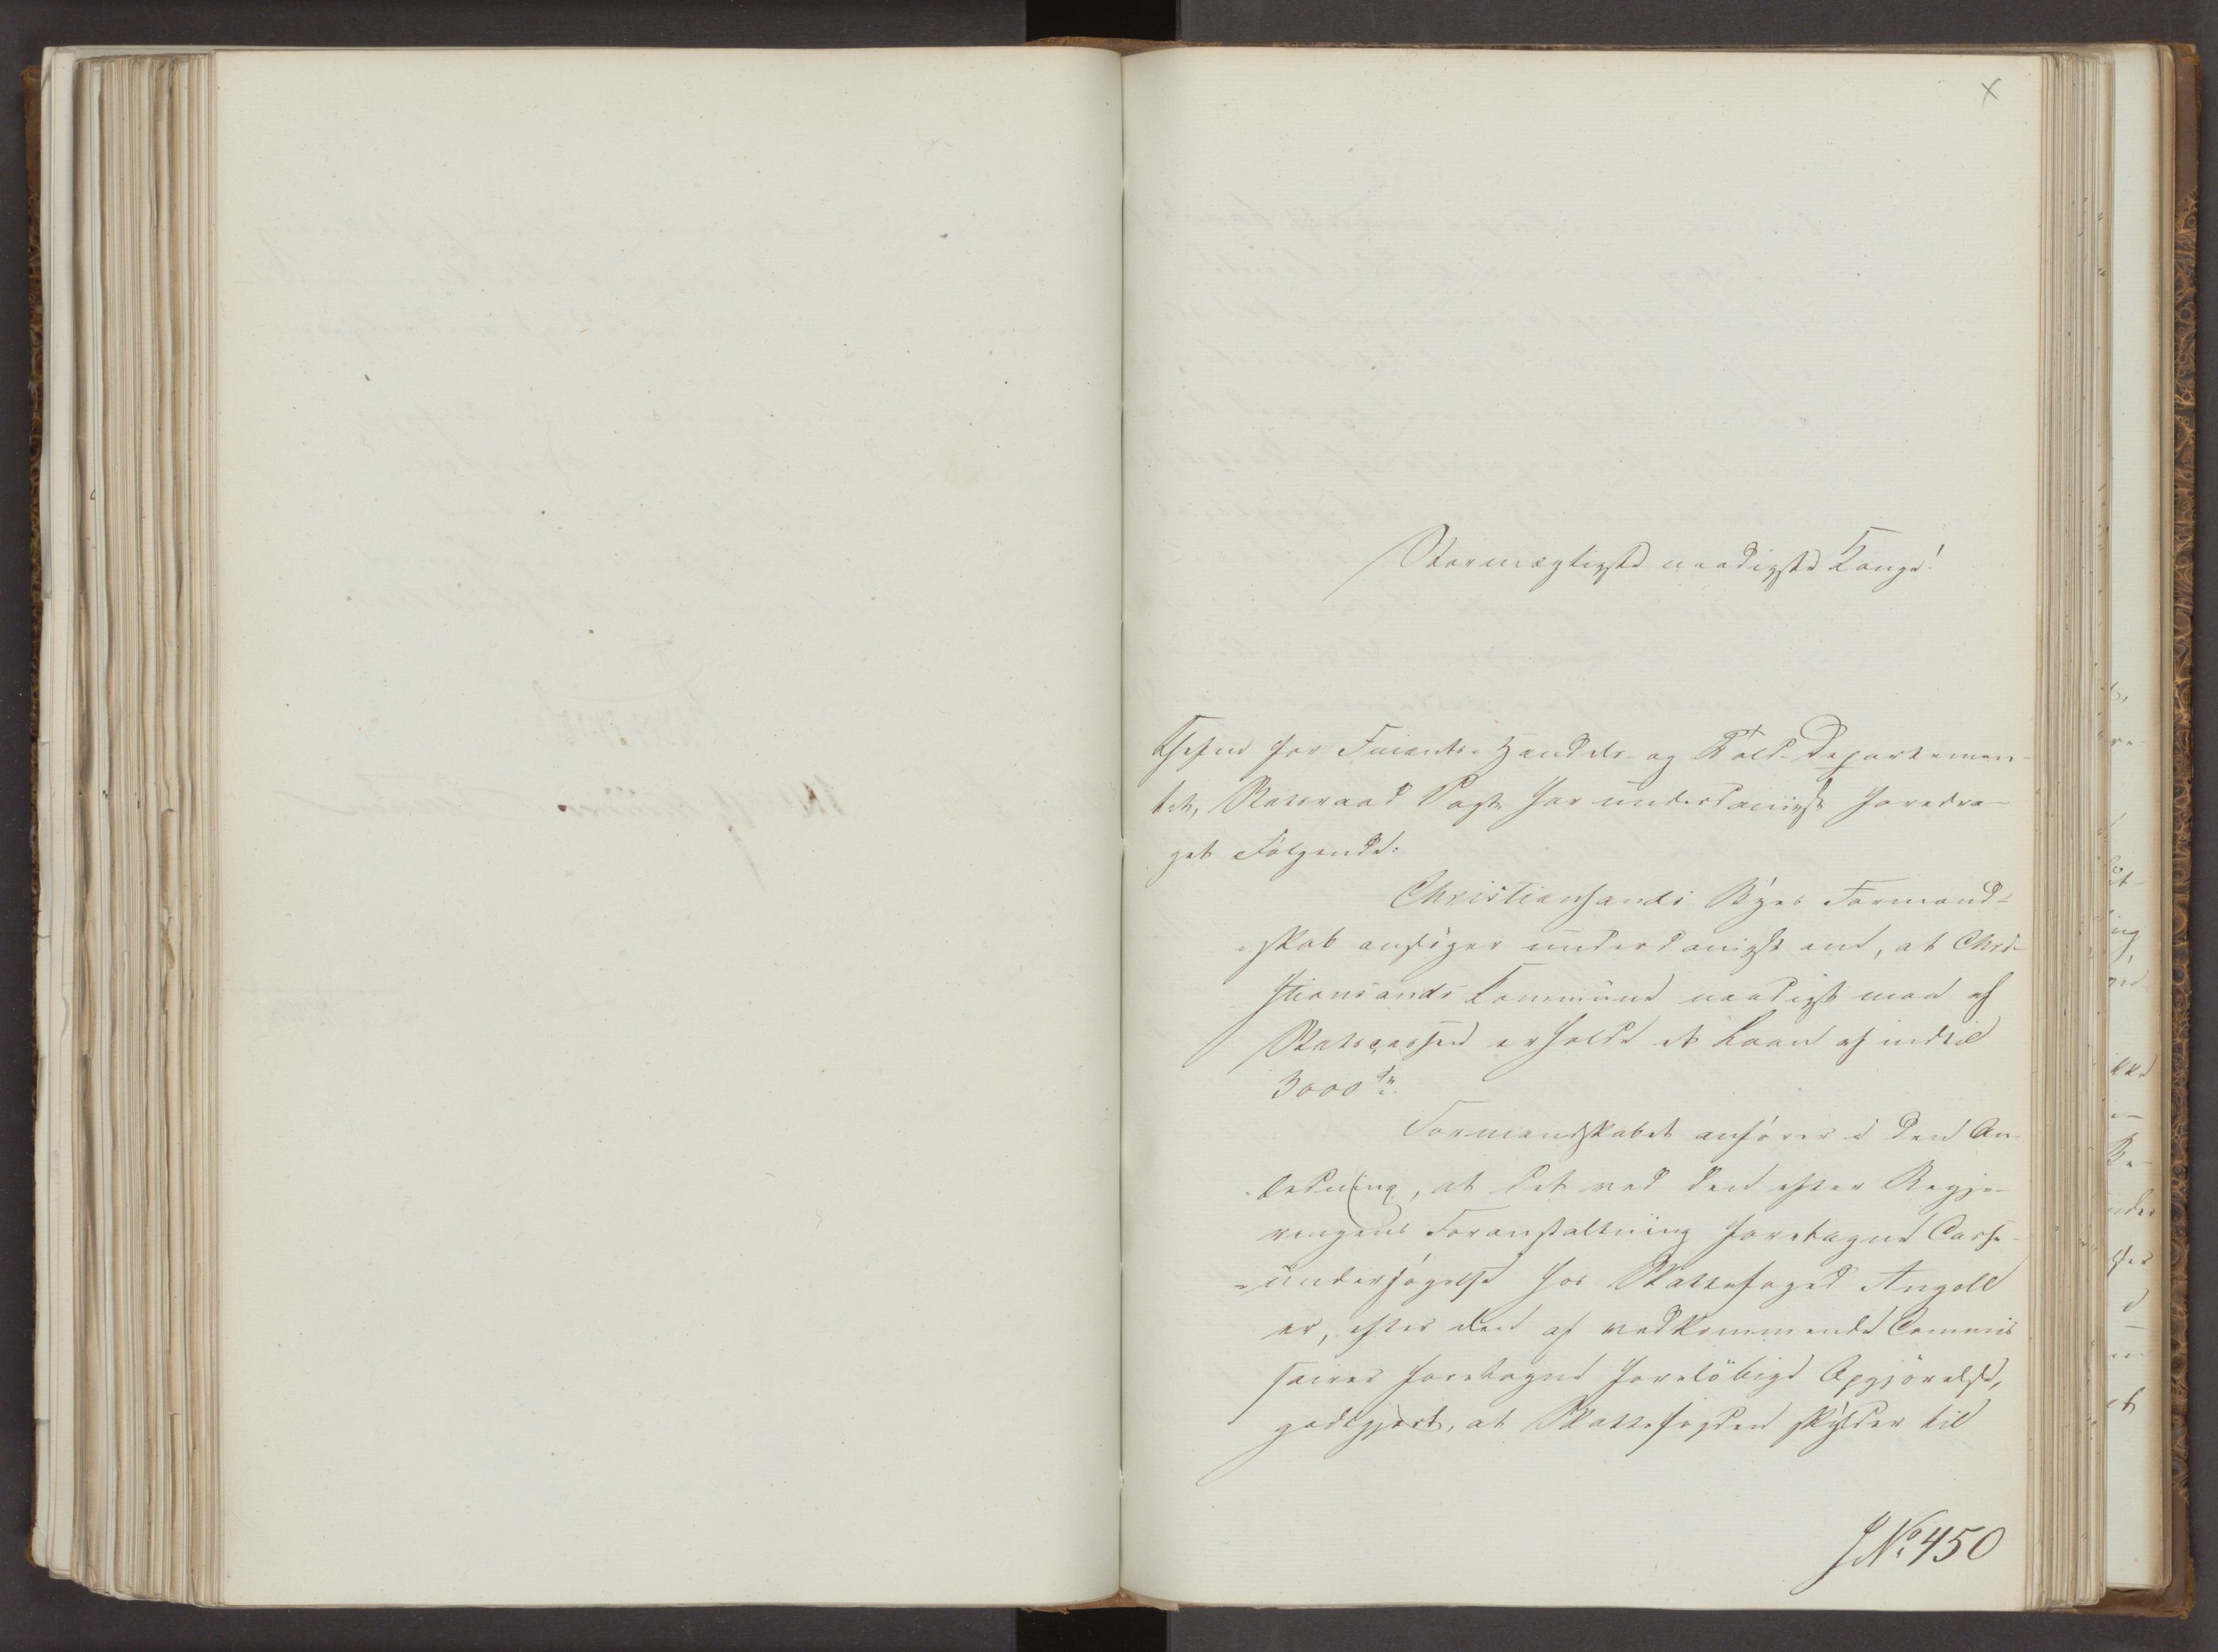 Stormægtigste naadigste Konge!
Chefen for Finants- Handels- og Told-Departemen-
tet, Statsraad Vogt har underdanigst foredra-
get Følgende:
Christiansands Byes Formand-
skab ansøger underdanigst om, at Chri-
stiansands Commune naadigst maa af
Statscassen erholde et Laan af indtil
3000 Sp.
Formandskabet anfører i den An-
ledning, at det ved den efter Regje-
ringens Foranstaltning foretagne Casse-
undersøgelse hos Skattefoged Angell
er, efter den af vedkommende Commis
sairer foretagne foreløbige Opgjørelse,
godtgjort, at Skattefogden skylder til
J No. 450